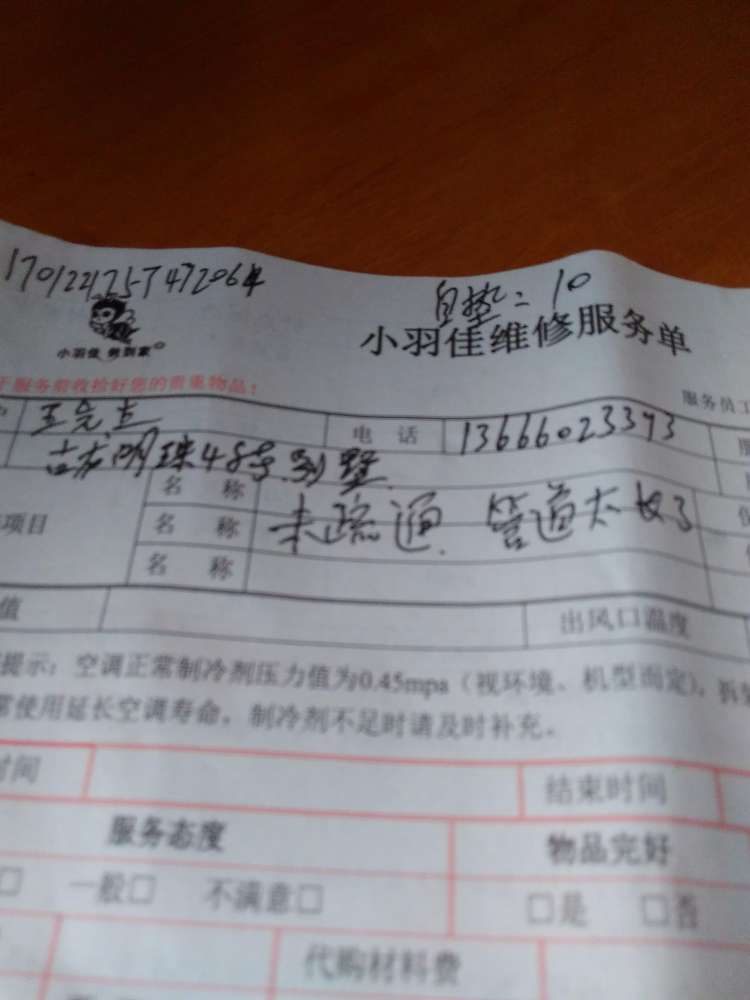 1701221757472064
自垫=10
小羽佳 做到家
小羽佳维修服务单
服务前收拾好您的贵重物品!
服务员工
电话 13666023373
吉龙明珠48号别墅
名称
项目 名称 未疏通 管道太
名称
值 出风口温度
提示:空调正常制冷剂压力值为0.45mpa(视环境、机型而定),拆
使用延长空调寿命,制冷剂不足时请及时补充。
时间 结束时间
服务态度 物品完好
□ 一般□ 不满意□ □是 □否
代购材料费